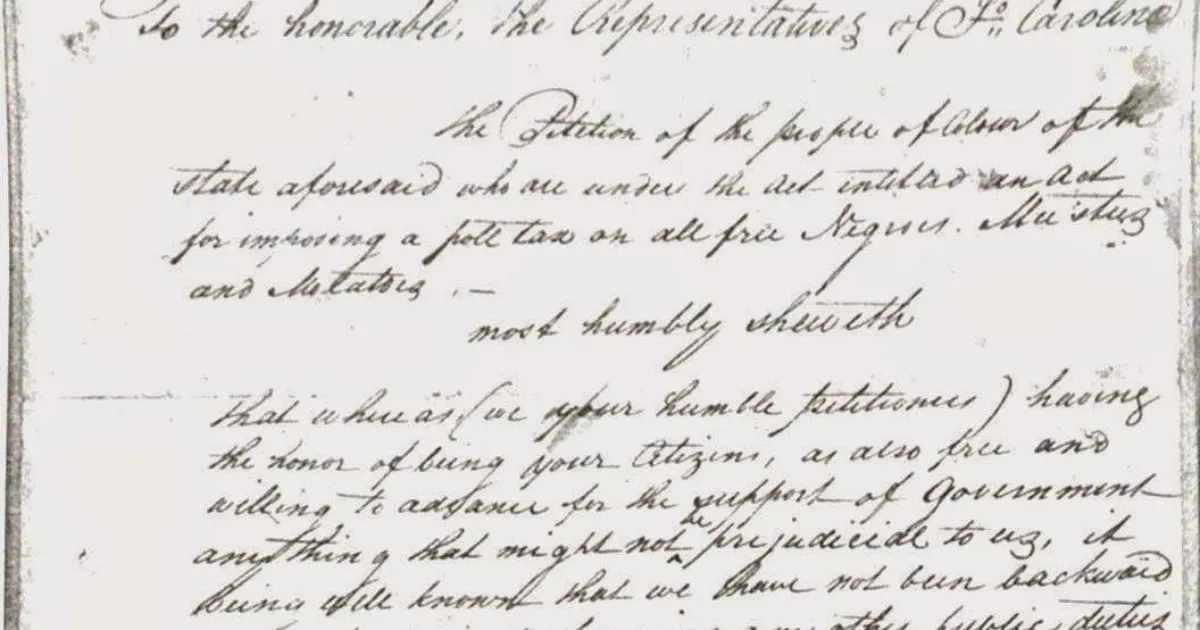 To the honorable, the Representatives of So. Carolina
the Petition of the people of Colour of the
State aforesaid who are under the act intitled an Act
for imposing a poll tax on all free Negroes. Mustees
and Mulatoes . —
most humbly sheweth
that whereas (we your humble petitioners) having
the honor of being your Citizens, as also free and
willing to advance for the support of Government
anything that might not be prejudicial to us, it
being well known that we have not been backward
other public duties